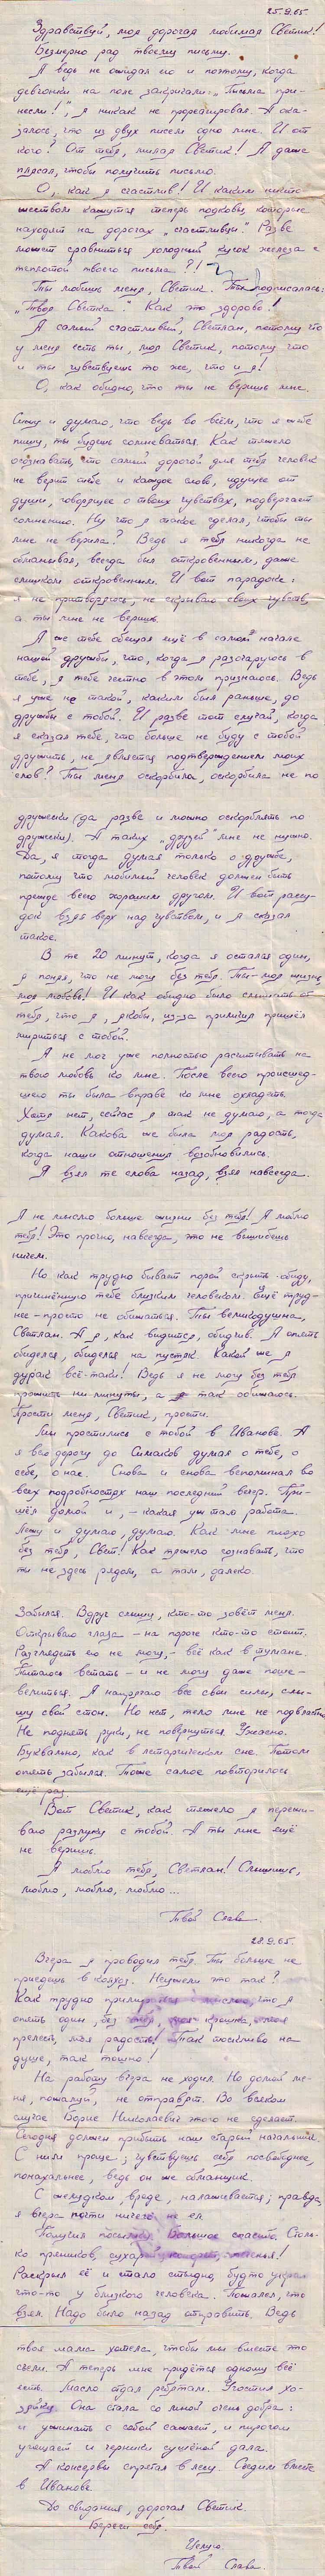 25.9.65.
Здравствуй, моя дорогая любимая Светик!
Безмерно рад твоему письму.
Я ведь не ожидал его и поэтому, когда
девчонки на поле закричали: „Письма при-
несли!", я никак не прореагировал. А ока-
залось, что из двух писем одно мне. И от
кого? От тебя, милая Светик! Я даже
плясал, чтобы получить письмо.
О, как я счастлив! И каким ничто-
жеством кажутся теперь подковы, которые
находят на дорогах „счастливцы". Разве
может сравниться холодный кусок железа с
теплотой твоего письма?!
Ты любишь меня, Светик. Ты подписалась:
„Твоя Светка". Как это здорово!
Я самый счастливый, Светлан, потому что
у меня есть ты, моя Светик, потому что
и ты чувствуешь то же, что и я!
О, как обидно, что ты не веришь мне.
Сижу и думаю, что ведь во всём, что я тебе
пишу, ты будешь сомневаться. Как тяжело
осознавать, что самый дорогой для тебя человек
не верит тебе и каждое слово, идущее от
души, говорящее о твоих чувствах, подвергает
сомнению. Ну что я такое сделал, чтобы ты
мне не верила? Ведь я тебя никогда не
обманывал, всегда был откровенным, даже
слишком откровенным. И вот парадокс:
я не притворяюсь, не скрываю своих чувств,
а ты мне не веришь.
Я же тебе обещал ещё в самом начале
нашей дружбы, что, когда я разочаруюсь в
тебе, я тебе честно в этом признаюсь. Ведь
я уже не такой, каким был раньше, до
дружбы с тобой. И разве тот случай, когда
я сказал тебе, что больше не буду с тобой
дружить, не является подтверждением моих
слов? Ты меня оскорбила, оскорбила не по
дружески (да разве и можно оскорблять по
дружески). А таких „друзей" мне не нужно.
Да, я тогда думал только о дружбе,
потому что любимый человек должен быть
прежде всего хорошим другом. И вот рассу-
док взял верх над чувством, и я сказал
такое.
В те 20 минут, когда я остался один,
я понял, что не могу без тебя. Ты - моя жизнь,
моя любовь! И как обидно было слышать от
тебя, что я, якобы, из-за приличия пришёл
мириться с тобой.
Я не мог уже полностью расчитывать на
твою любовь ко мне. После всего происшед-
шего ты была вправе ко мне охладеть.
Хотя нет, сейчас я так не думаю, а тогда
думал. Какова же была моя радость,
когда наши отношения возобновились.
Я взял те слова назад, взял навсегда.
Я не мыслю больше жизни без тебя! Я люблю
тебя! Это прочно, навсегда, это не вышибешь
ничем.
Но как трудно бывает порой скрыть обиду,
причинённую тебе близким человеком. Ещё труд-
нее - просто не обижаться. Ты великодушна,
Светлан. А я, как видится, обидчив. Я опять
обиделся, обиделся на пустяк. Какой же я
дурак всё-таки! Ведь я не могу без тебя
прожить ни минуты, а так обижаюсь.
Прости меня, Светик, прости.
Мы простились с тобой в Иванове. А
я всю дорогу до Симаков думал о тебе, о
себе, о нас. Снова и снова вспоминал во
всех подробностях наш последний вечер. При-
шёл домой и, - какая уж там работа.
Лежу и думаю, думаю. Как мне плохо
без тебя, Свет! Как тяжело сознавать, что
ты не здесь рядом, а там, далеко.
Забылся. Вдруг слышу, кто-то зовёт меня.
Открываю глаза - на пороге кто-то стоит.
Разглядеть его не могу, - всё как в тумане.
Пытаюсь встать - и не могу даже поше-
вельнуться. Я напрягаю все свои силы, слы-
шу свой стон. Но нет, тело мне не подвластно.
Не поднять руки, не повернуться. Ужасно.
Буквально, как в летаргическом сне. Потом
опять забылся. Тоже самое повторилось
ещё раз.
Вот Светик, как тяжело я пережи-
ваю разлуку с тобой. А ты мне ещё
не веришь.
Я люблю тебя, Светлан! Слышишь,
люблю, люблю, люблю...
Твой Слава.
28.9.65.
Вчера я проводил тебя. Ты больше не
приедешь в колхоз. Неужели это так?
Как трудно примириться с мыслью, что я
опять один, без тебя, моя крошка, моя
прелесть, моя радость! Так тоскливо на
душе, так тошно!
На работу вчера не ходил. Но домой ме-
ня, пожалуй, не отправят. Во всяком
случае Борис Николаевич этого не сделает.
Сегодня должен прибыть наш старый начальник.
С ним проще; чувствуешь себя посвободнее,
понахальнее, ведь он же обманщик.
С желудком, вроде, налаживается; правда,
я вчера почти ничего не ел.
Получил посылку. Большое спасибо. Столь-
ко пряников, сухарей, конфет, масла!
Раскрыл её и стало стыдно, будто украл
что-то у близкого человека. Пожалел, что
взял. Надо было назад отправить. Ведь
твоя мама хотела, чтобы мы вместе это
съели. А теперь мне придётся одному всё
есть. Масло отдал ребятам. Угостил хо-
зяйку. Она стала со мной очень добра:
и ужинать с собой сажает, и пирогом
угощает и черники сушёной дала.
А консервы спрятал в лесу. Съедим вместе
в Иванове.
До свидания, дорогая Светик.
Береги себя.
Целую.
Твой Слава.